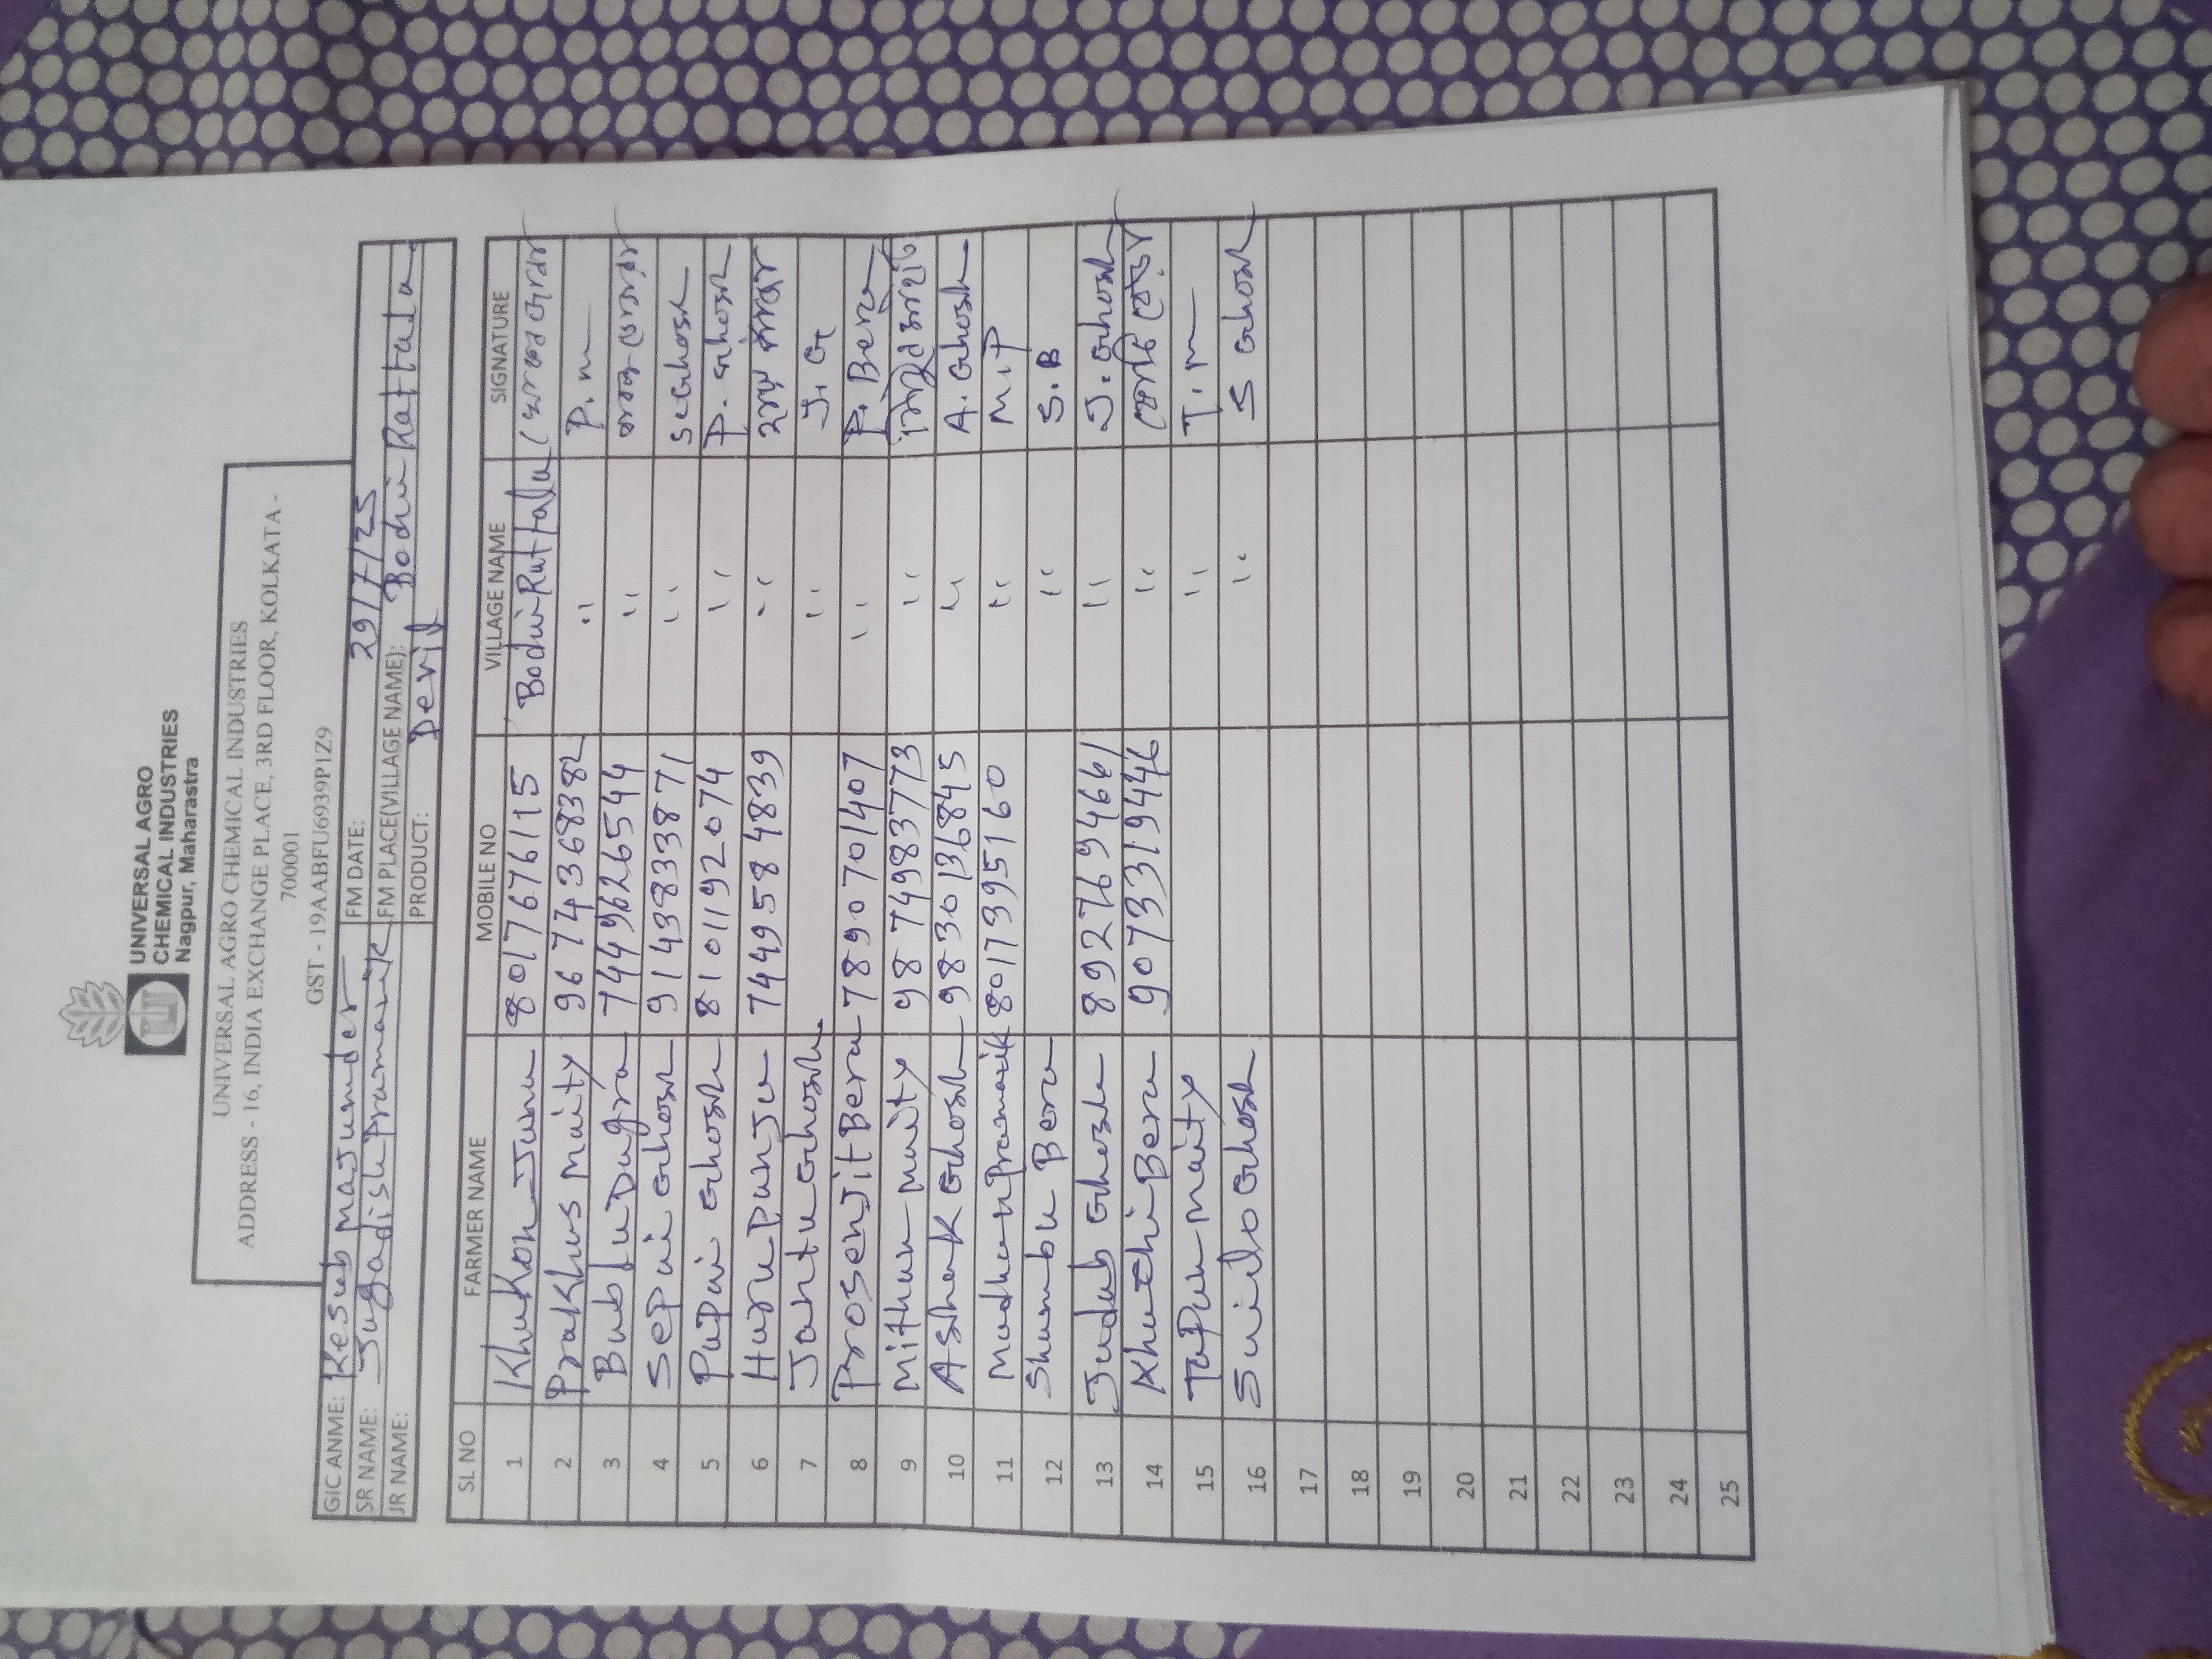 UNIVERSAL AGRO
CHEMICAL INDUSTRIES
Nagpur, Maharastra
UNIVERSAL AGRO CHEMICAL INDUSTRIES
ADDRESS - 16, INDIA EXCHANGE PLACE, 3RD FLOOR, KOLKATA -
700001
GST - 19AABFU6939P1Z9
GIC ANME: Kesub Majumder FM DATE: 29/7/25
SR NAME: Jugadish Pramanik FM PLACE(VILLAGE NAME): Bodhi Rattala
JR NAME: PRODUCT: Derid
SL NO FARMER NAME MOBILE NO VILLAGE NAME SIGNATURE
1 Khukon Juna 8017676115 BodhiRuttala
2 Prakhus Maity 9674368382 " P.m
3 Bublu Dugra 7449626544 "
4 Sepui Ghosh 9143833871 " S Ghosh
5 Pupui Ghosh 8101192074 " P. Ghosh
6 Huru Punju 7449584839 "
7 Jantu Ghosh " J. G
8 Prosenjit Bera 7890701407 " P. Bera
9 Mithun Muity 9874983773 "
10 Ashok Ghosh 9830136845 " A. Ghosh
11 Mudhu Pramanik 8017395160 " M.P
12 Shumbu Bera " S.B
13 Judub Ghosh 8927694661 " J. Ghosh
14 Khuthi Bera 9073319446 "
15 Tapun Maity " T.m
16 Sunilo Ghosh " S Ghosh
17
18
19
20
21
22
23
24
25